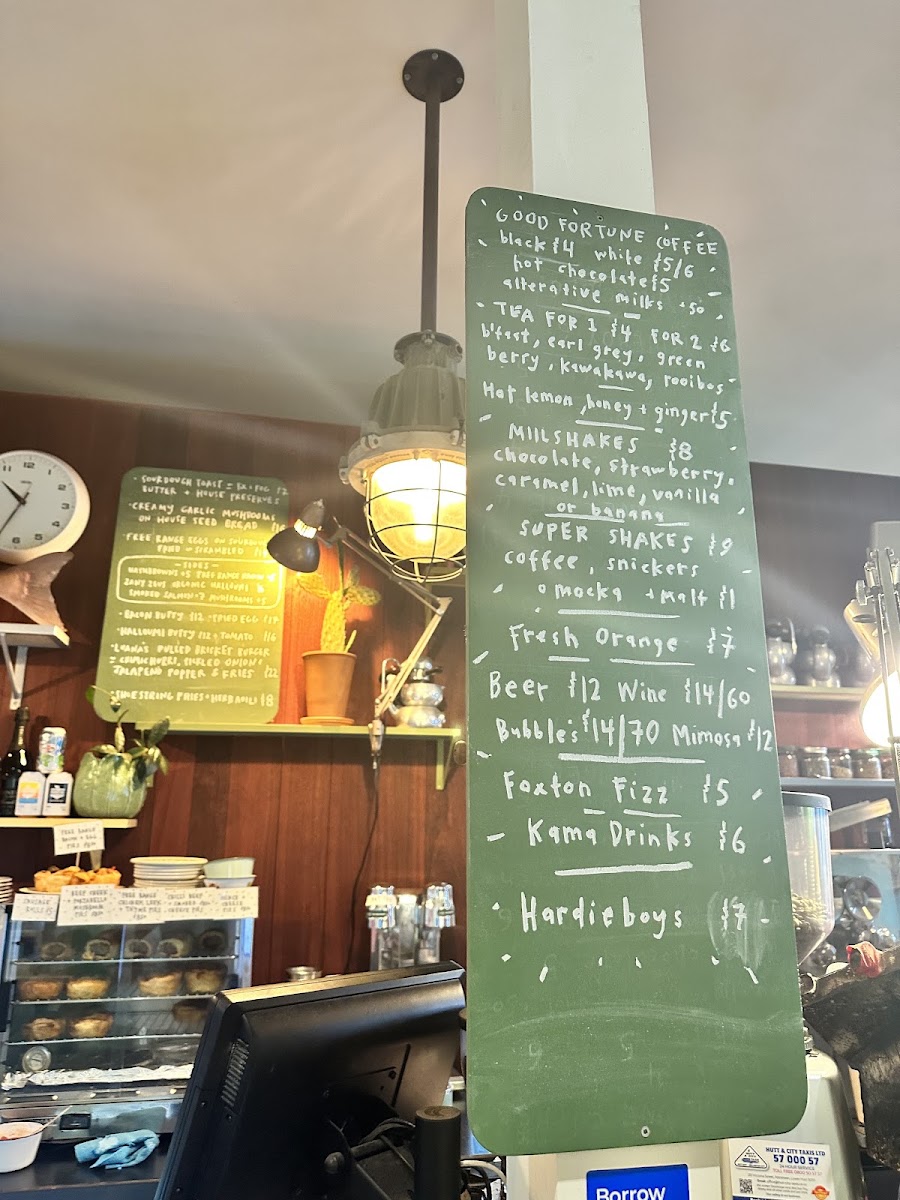 GOOD FORTUNE COFFEE
black $4 white $5/6
hot chocolate $5
alterative milks +50
TEA FOR 1 $4 FOR 2 $6
b'fast, earl grey, green
berry, kawakawa, rooibos
Hot lemon, honey + ginger $5
MIILSHAKES $8
chocolate, strawberry,
caramel, lime, vanilla
or banana
SUPER SHAKES $9
coffee, snickers
mocka + malt $1
Fresh Orange $7
Beer $12 Wine $14/60
Bubbles $14/70 Mimosa $12
Foxton Fizz $5
Kama Drinks $6
Hardieboys $7
SOURDOUGH TOAST
BUTTER + HOUSE PRESERVES
CREAMY GARLIC
ON HOUSE SEED BREAD
FREE RANGE EGGS ON
FRIED OR SCRAMBLED
SIDES
ORGANIC HALLOUMI
SMOKED SALMON + 7 MUSHROOMS + 5
BACON BUTTY $12 + FRIED EGG $17
HALLOUMI BUTTY $12 + TOMATO $16
PULLED BRISKET BURGER
JALAPENO POPPER & FRIES $22
SHOESTRING FRIES + HERB AIOLI $8
HUTT & CITY TAXIS LTD
57 000 57
24 HOUR SERVICE
Borrow